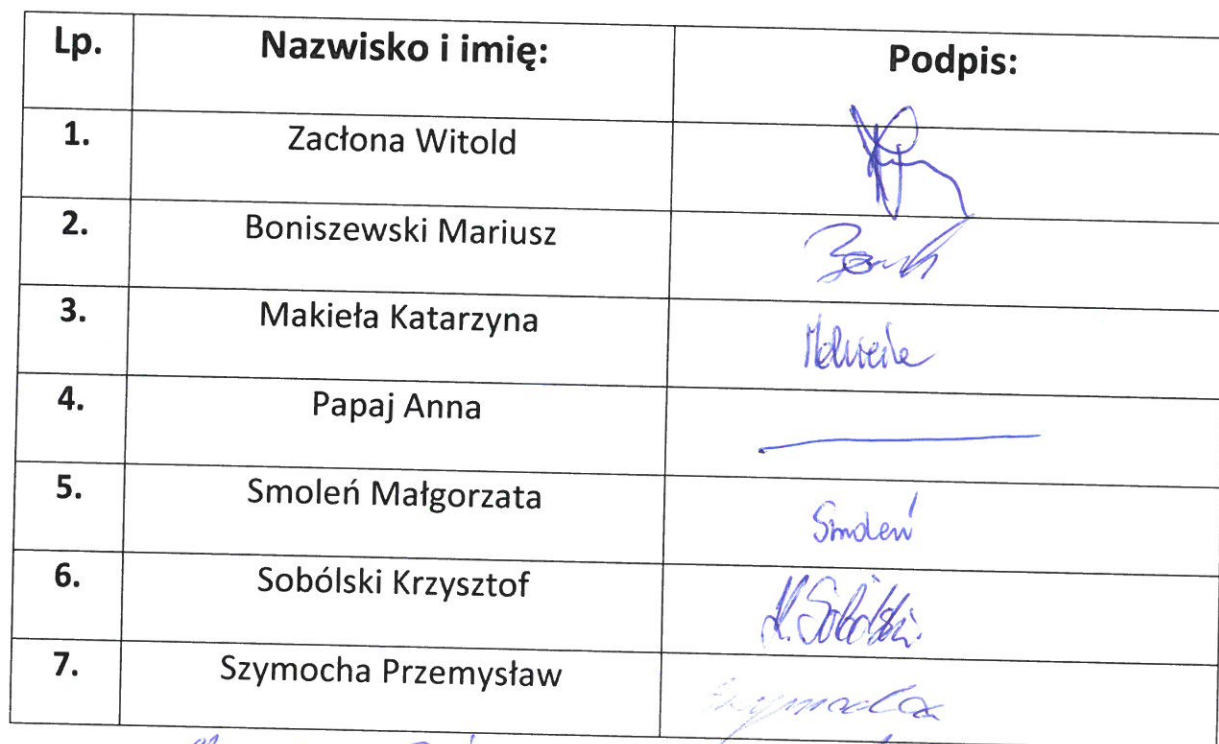 Lp. Nazwisko i imię: Podpis:
1. Zacłona Witold
2. Boniszewski Mariusz
3. Makieła Katarzyna
4. Papaj Anna
5. Smoleń Małgorzata Smoleń
6. Sobólski Krzysztof K. Sobólski
7. Szymocha Przemysław Szymocha